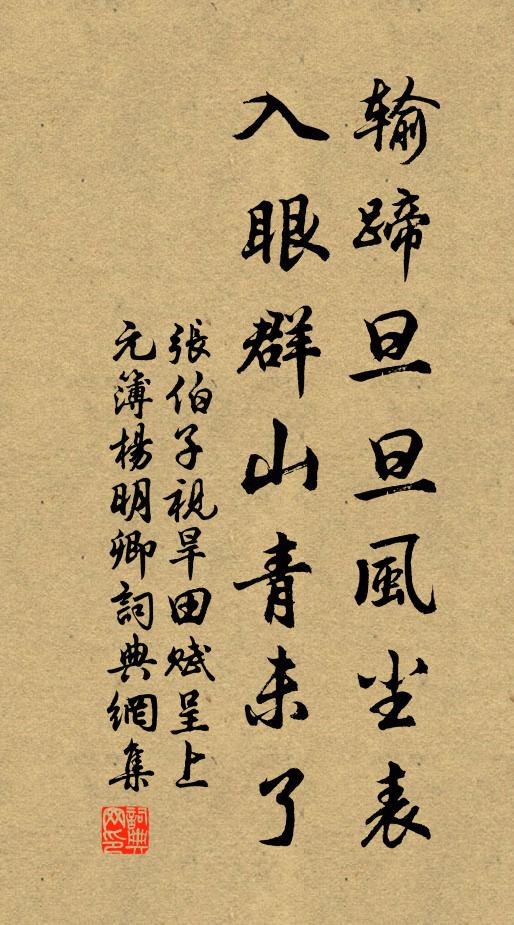 输蹄旦旦風尘表
入眼群山青未了
張伯子視旱田赋呈上
元簿楊明卿詞典網集
詞典网印